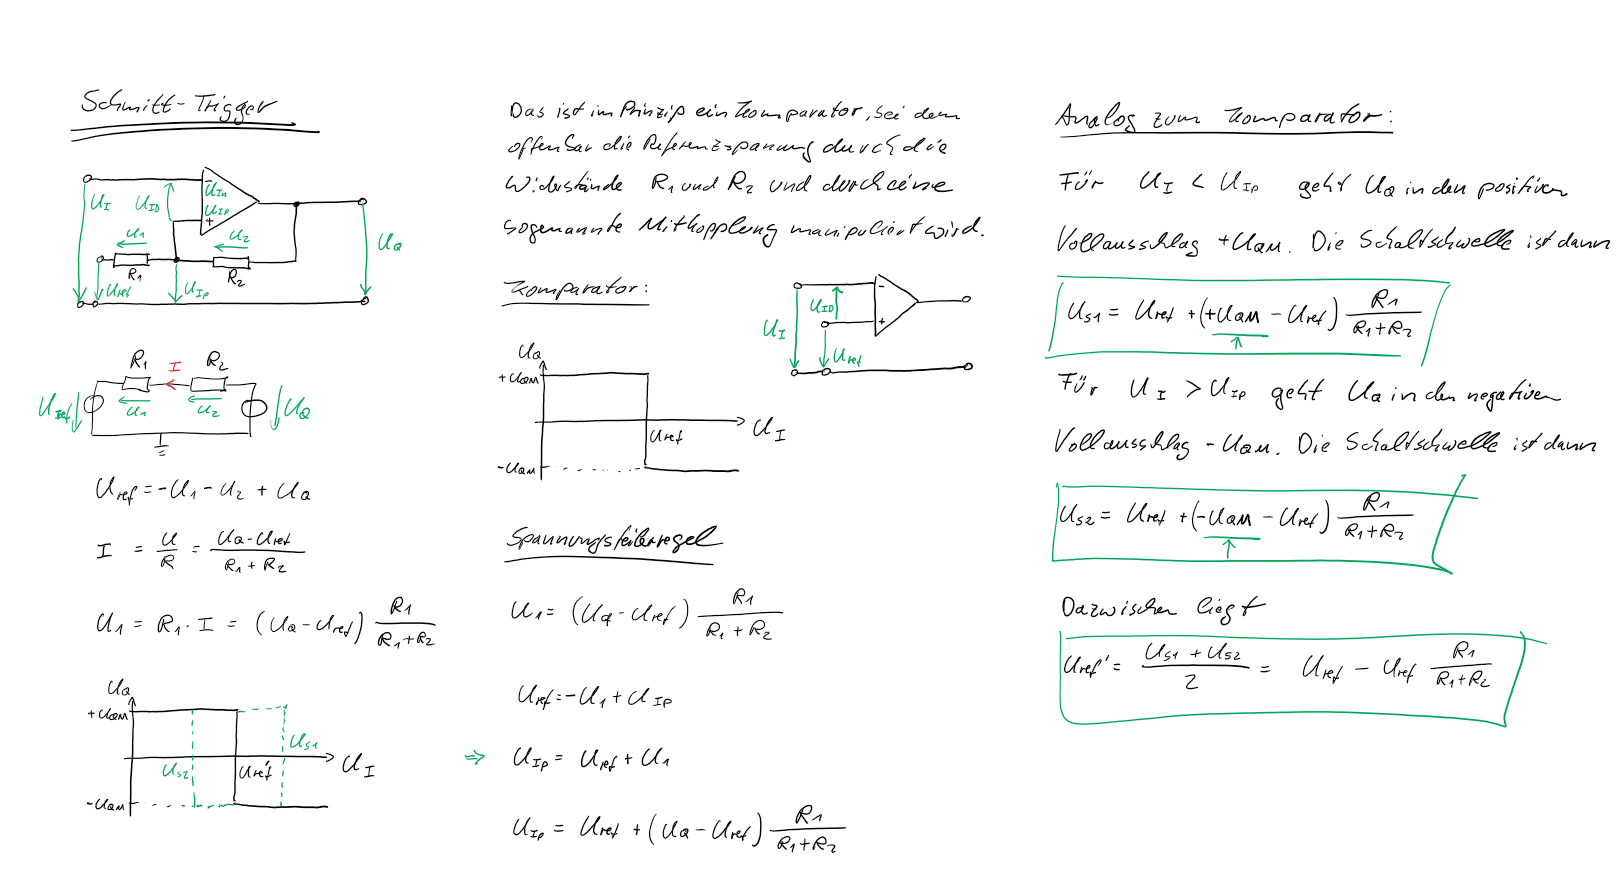 Schmitt-Trigger
U_I U_ID - U_In
U_Ip +
U_1 U_2 U_a
R_1 R_2
U_ref U_Ip
R_1 I R_2
U_ref U_1 U_2 U_a
U_ref = -U_1 - U_2 + U_a
I = U/R = (U_a - U_ref)/(R_1 + R_2)
U_1 = R_1 · I = (U_a - U_ref) R_1/(R_1+R_2)
U_a
+U_am
U_s1
U_s2 U_ref' U_I
-U_am
Das ist im Prinzip ein Komparator, bei dem
offenbar die Referenzspanung durch die
Widerstände R_1 und R_2 und durch eine
sogenannte Mitkopplung manipuliert wird.
Komparator:
-
U_ID
U_I +
U_ref
U_a
+U_am
U_ref U_I
-U_am
Spannungsteilerregel
U_1 = (U_a - U_ref) R_1/(R_1 + R_2)
U_ref = -U_1 + U_Ip
⇒ U_Ip = U_ref + U_1
U_Ip = U_ref + (U_a - U_ref) R_1/(R_1+R_2)
Analog zum Komparator:
Für U_I < U_Ip geht U_a in den positiven
Vollausschlag +U_am. Die Schaltschwelle ist dann
U_s1 = U_ref + (+U_am - U_ref) R_1/(R_1+R_2)
↑
Für U_I > U_Ip geht U_a in den negativen
Vollausschlag -U_am. Die Schaltschwelle ist dann
U_s2 = U_ref + (-U_am - U_ref) R_1/(R_1+R_2)
↑
Dazwischen liegt
U_ref' = (U_s1 + U_s2)/2 = U_ref - U_ref R_1/(R_1+R_2)